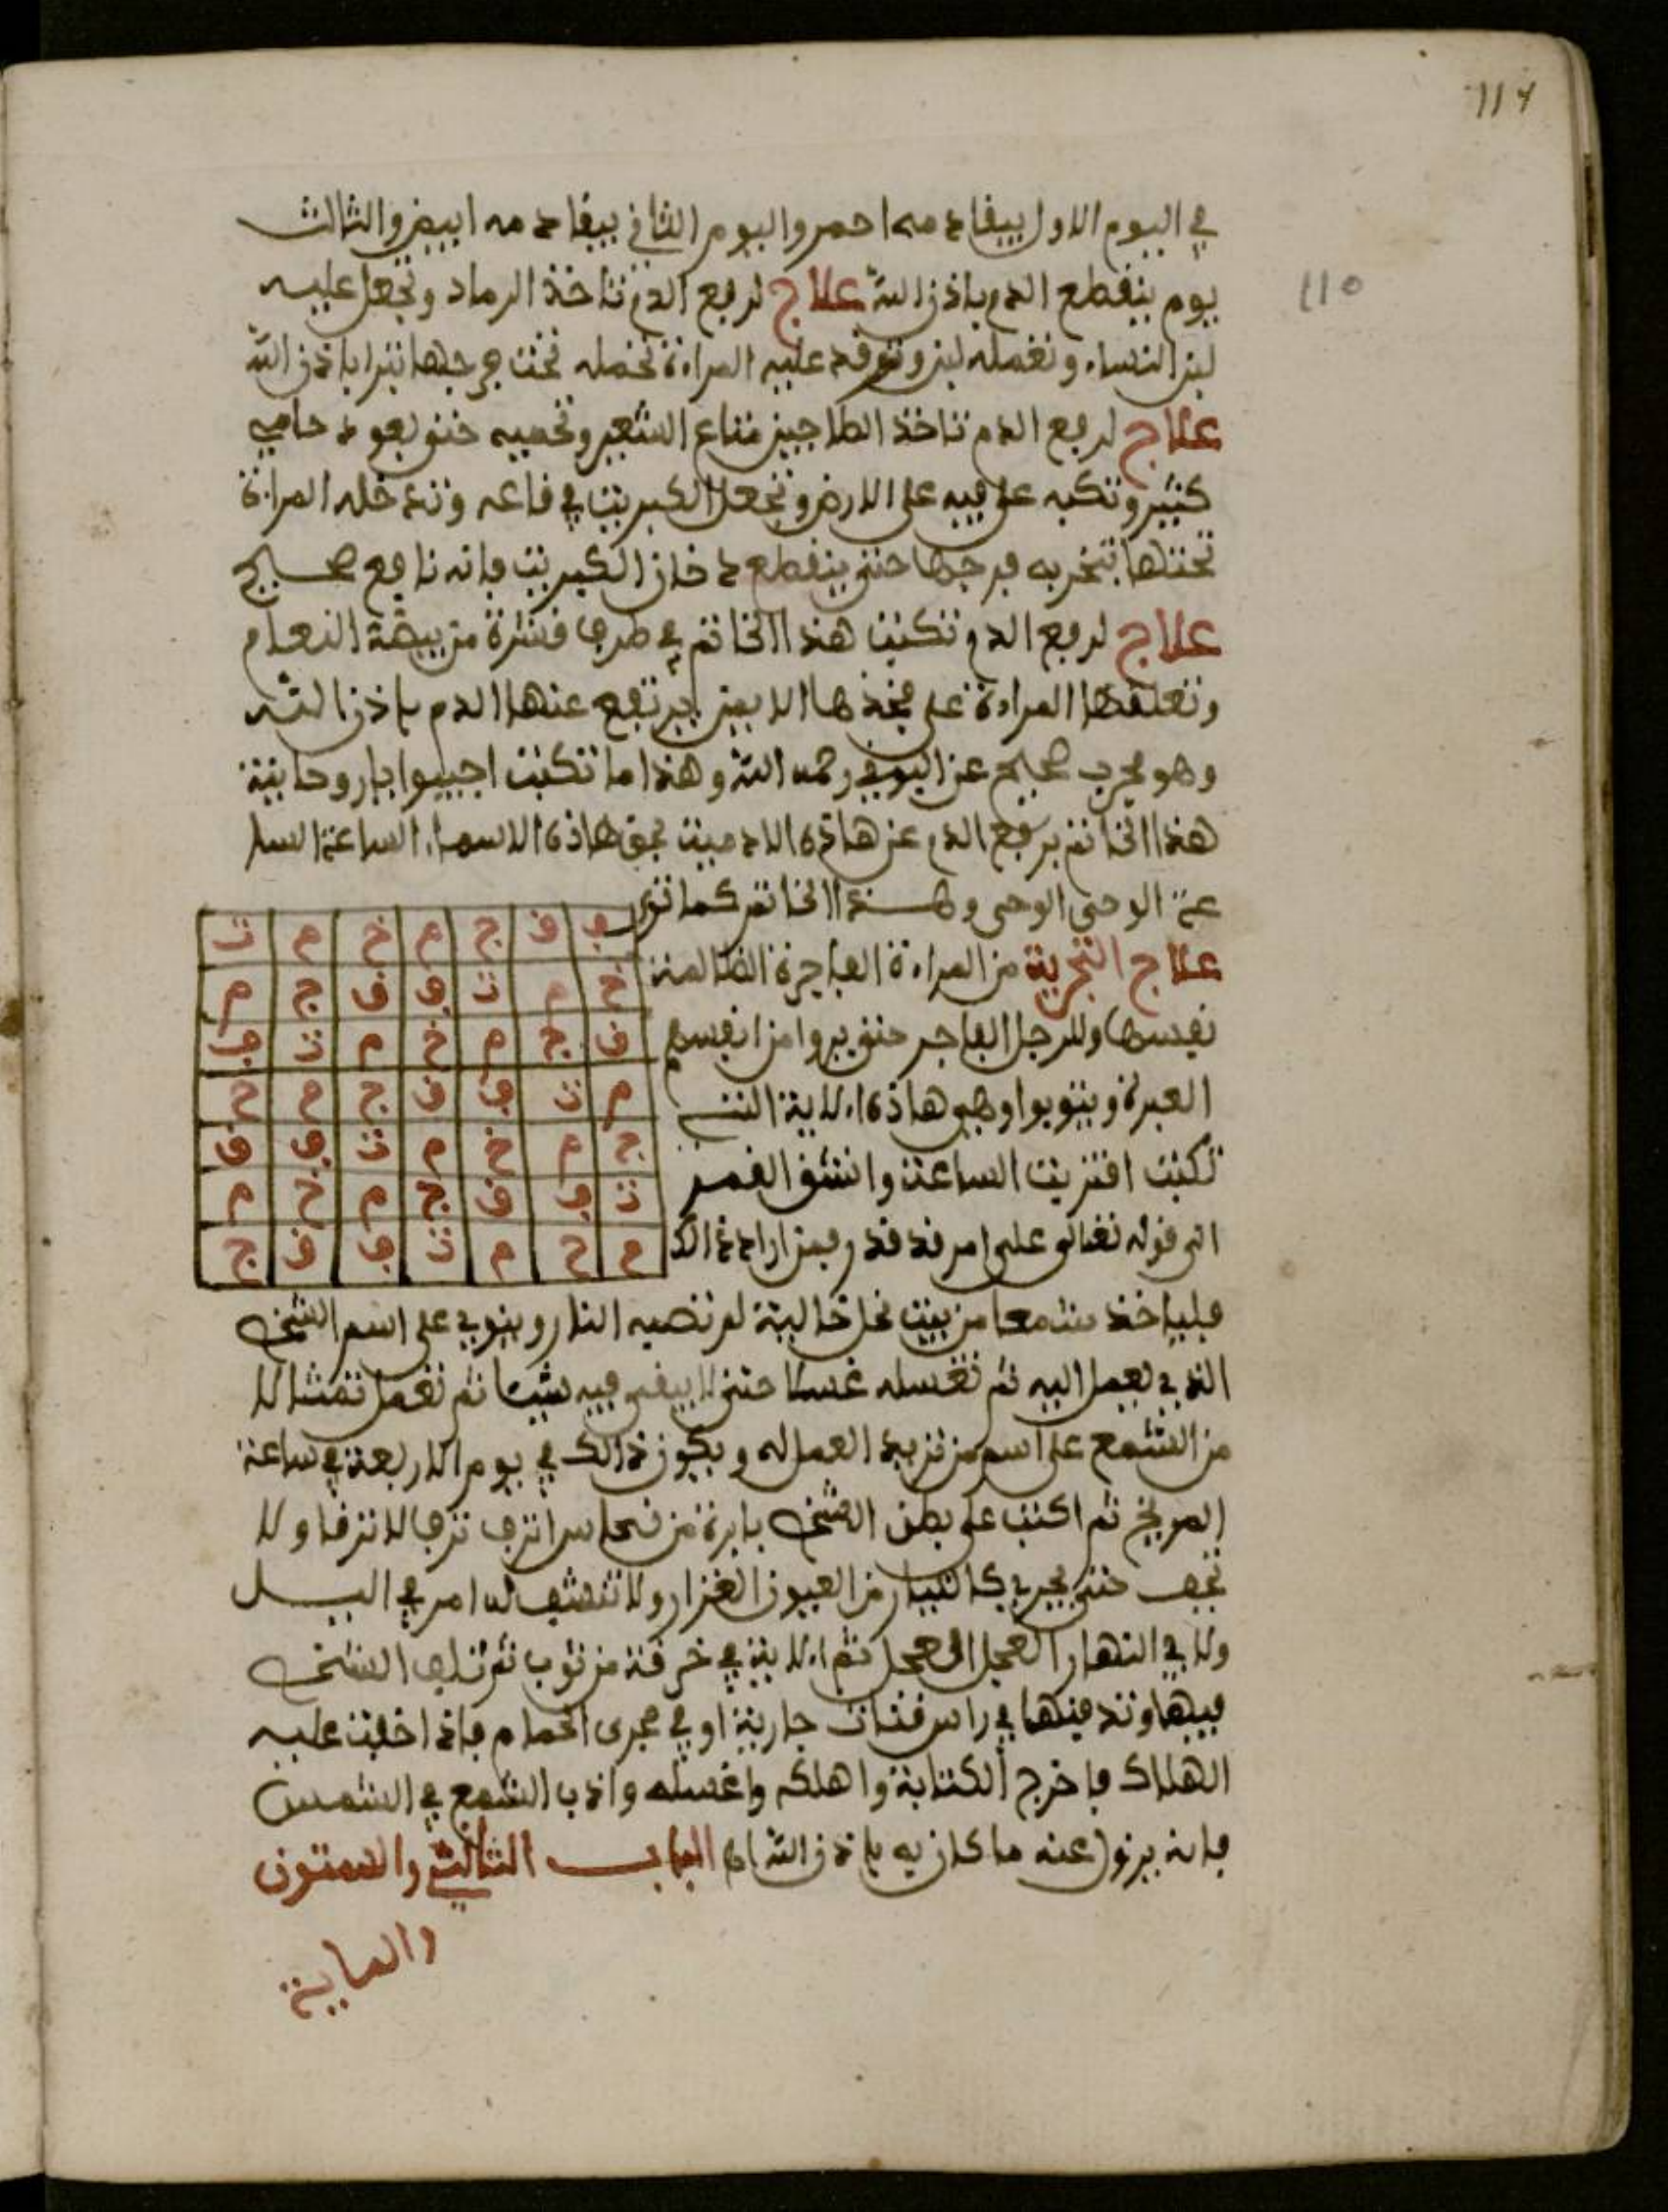 114
110
في اليوم الاول يبقا دمه احمر واليوم الثاني يبقا دمه ابيض والثالث
يوم ينقطع الدم باذن الله علاج لرفع الدم تاخذ الرماد وتجعل عليه
لبن النساء وتعمله عليه المراءة تحمله تحت فرجها تبرا باذن الله
علاج لرفع الدم تاخذ الطاجين متاع الشعير وتحميه حتى يعود حامي
كثير وتكبه على فيه على الارض وتجعل الكبريت في قاعه وتدخله المراءة
تحتها تبخر به فرجها حتى ينقطع دخان الكبريت فانه نافع صحيح
علاج لرفع الدم تكتب هذا الخاتم في طرف قشرة من بيضة النعام
وتعلقها المراءة على فخذها الايمن يرتفع عنها الدم باذن الله
وهو مجرب صحيح عن البوني رحمه الله وهذا ما تكتب اجيبوا يا روحانية
هذا الخاتم برفع الدم عن هاذه الادمية بحق هاذه الاسماء الساعة السا
عة الوحى الوحى وهذا الخاتم كما ترى
ف ق ج م خ م ت
علاج التجرية من المراءة الفاجرة الظالمة
خ م ت ف ق ج م
نفسها وللرجل الفاجر حتى يروا من انفسهم
ق ج م خ م ت ف
العبرة ويتوبوا وهي هاذه الاية التي
م ت ف ق ج م خ
تكتب اقتربت الساعة وانشق القمر
ج م خ م ت ف ق
ت ف ق ج م خ م
الى قوله تعالى على امر قد قدر فمن اراد ذالك
م خ م ت ف ق ج
فلياخذ شمعا من بيت نحل خالية لم تصبه النار وينوي على اسم الشخص
الذي يعمل اليه ثم تغسله غسلا حتى لا يبقى فيه شيئا ثم تعمل تمثالا
من الشمع على اسم من تريد العمل له ويكون ذالك في يوم الاربعة في ساعة
المريخ ثم اكتب على بطن الشخص بابرة من نحاس انزف نزف لا ترقا ولا
تجف حتى يجري كالتيار من العيون الغزار ولا تنشف له امر في اليل
ولا في النهار العجل العجل ثم الاية في خرقة من ثوب ثم تلف الشخص
فيها وتدفنها في راس قنات جارية او في مجرى الحمام فاذا خفت عليه
الهلاك فاخرج الكتابة واهلكه واغسله واذب الشمع في الشمس
فانه يزول عنه ما كان به باذن الله الباب الثالث والستون
والماية